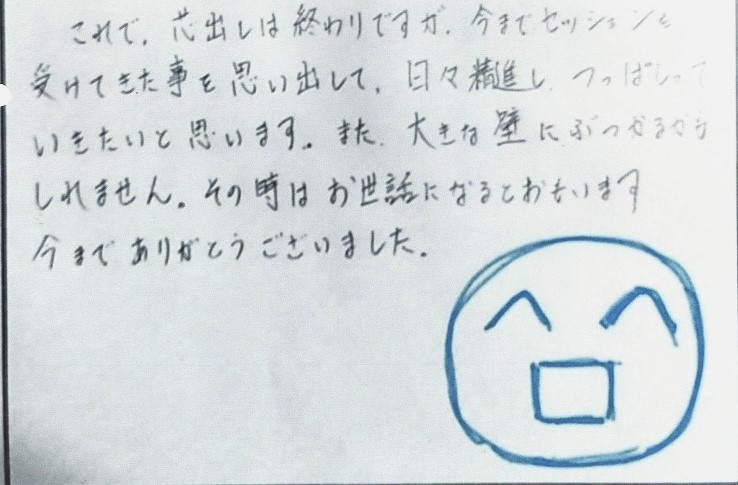 これで、芯出しは終わりですが、今までセッションを
受けてきた事を思い出して、日々精進し、つっぱしって
いきたいと思います。また、大きな壁にぶつかるかも
しれません。その時はお世話になるとおもいます
今までありがとうございました。